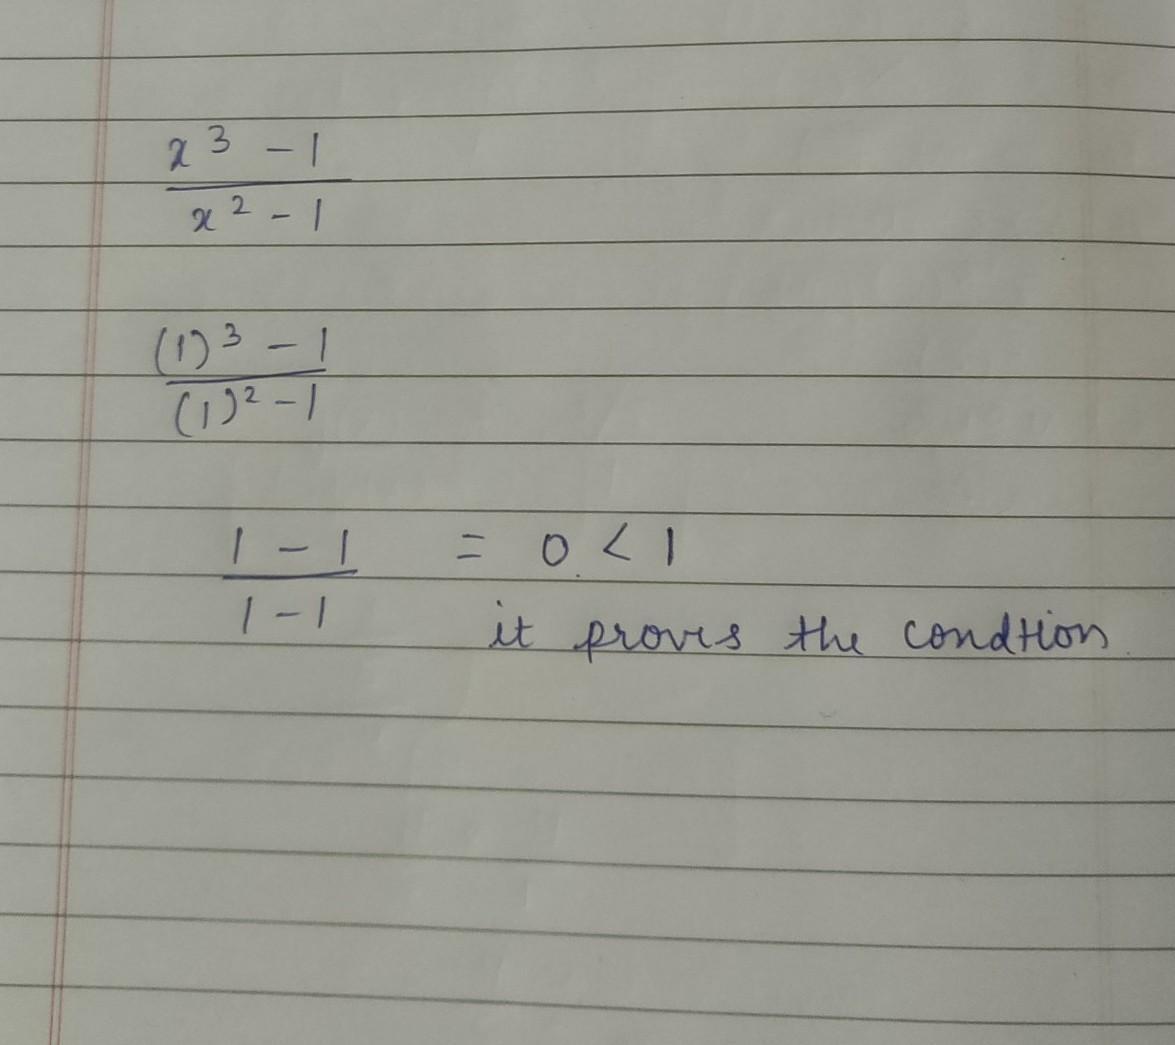 x³ - 1
x² - 1
(1)³ - 1
(1)² - 1
1 - 1 = 0 < 1
1 - 1
it proves the condtion.